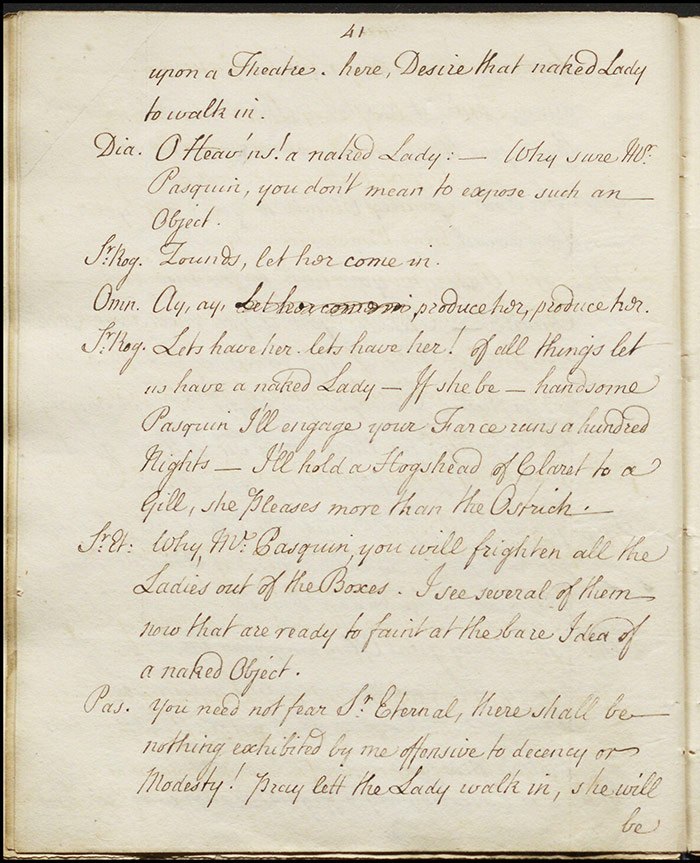 41
upon a Theatre. here, Desire that naked Lady
to walk in.
Dia. O Heav'ns! a naked Lady: — Why sure Mr.
Pasquin, you don't mean to expose such an
Object.
Sr. Rog. Zounds, let her come in.
Omn. Ay, ay, Let her come in, produce her, produce her.
Sr. Rog. Lets have her. lets have her! of all things let
us have a naked Lady — If she be — handsome
Pasquin I'll engage your Farce runs a hundred
Nights — I'll hold a Hogshead of Claret to a
Gill, she Pleases more than the Ostrich. —
Sr. Et: Why, Mr. Pasquin, you will frighten all the
Ladies out of the Boxes. I see several of them
now that are ready to faint at the bare Idea of
a naked Object.
Pas. You need not fear Sr. Eternal, there shall be
nothing exhibited by me offensive to decency or
Modesty! Pray lett the Lady walk in, she will
be